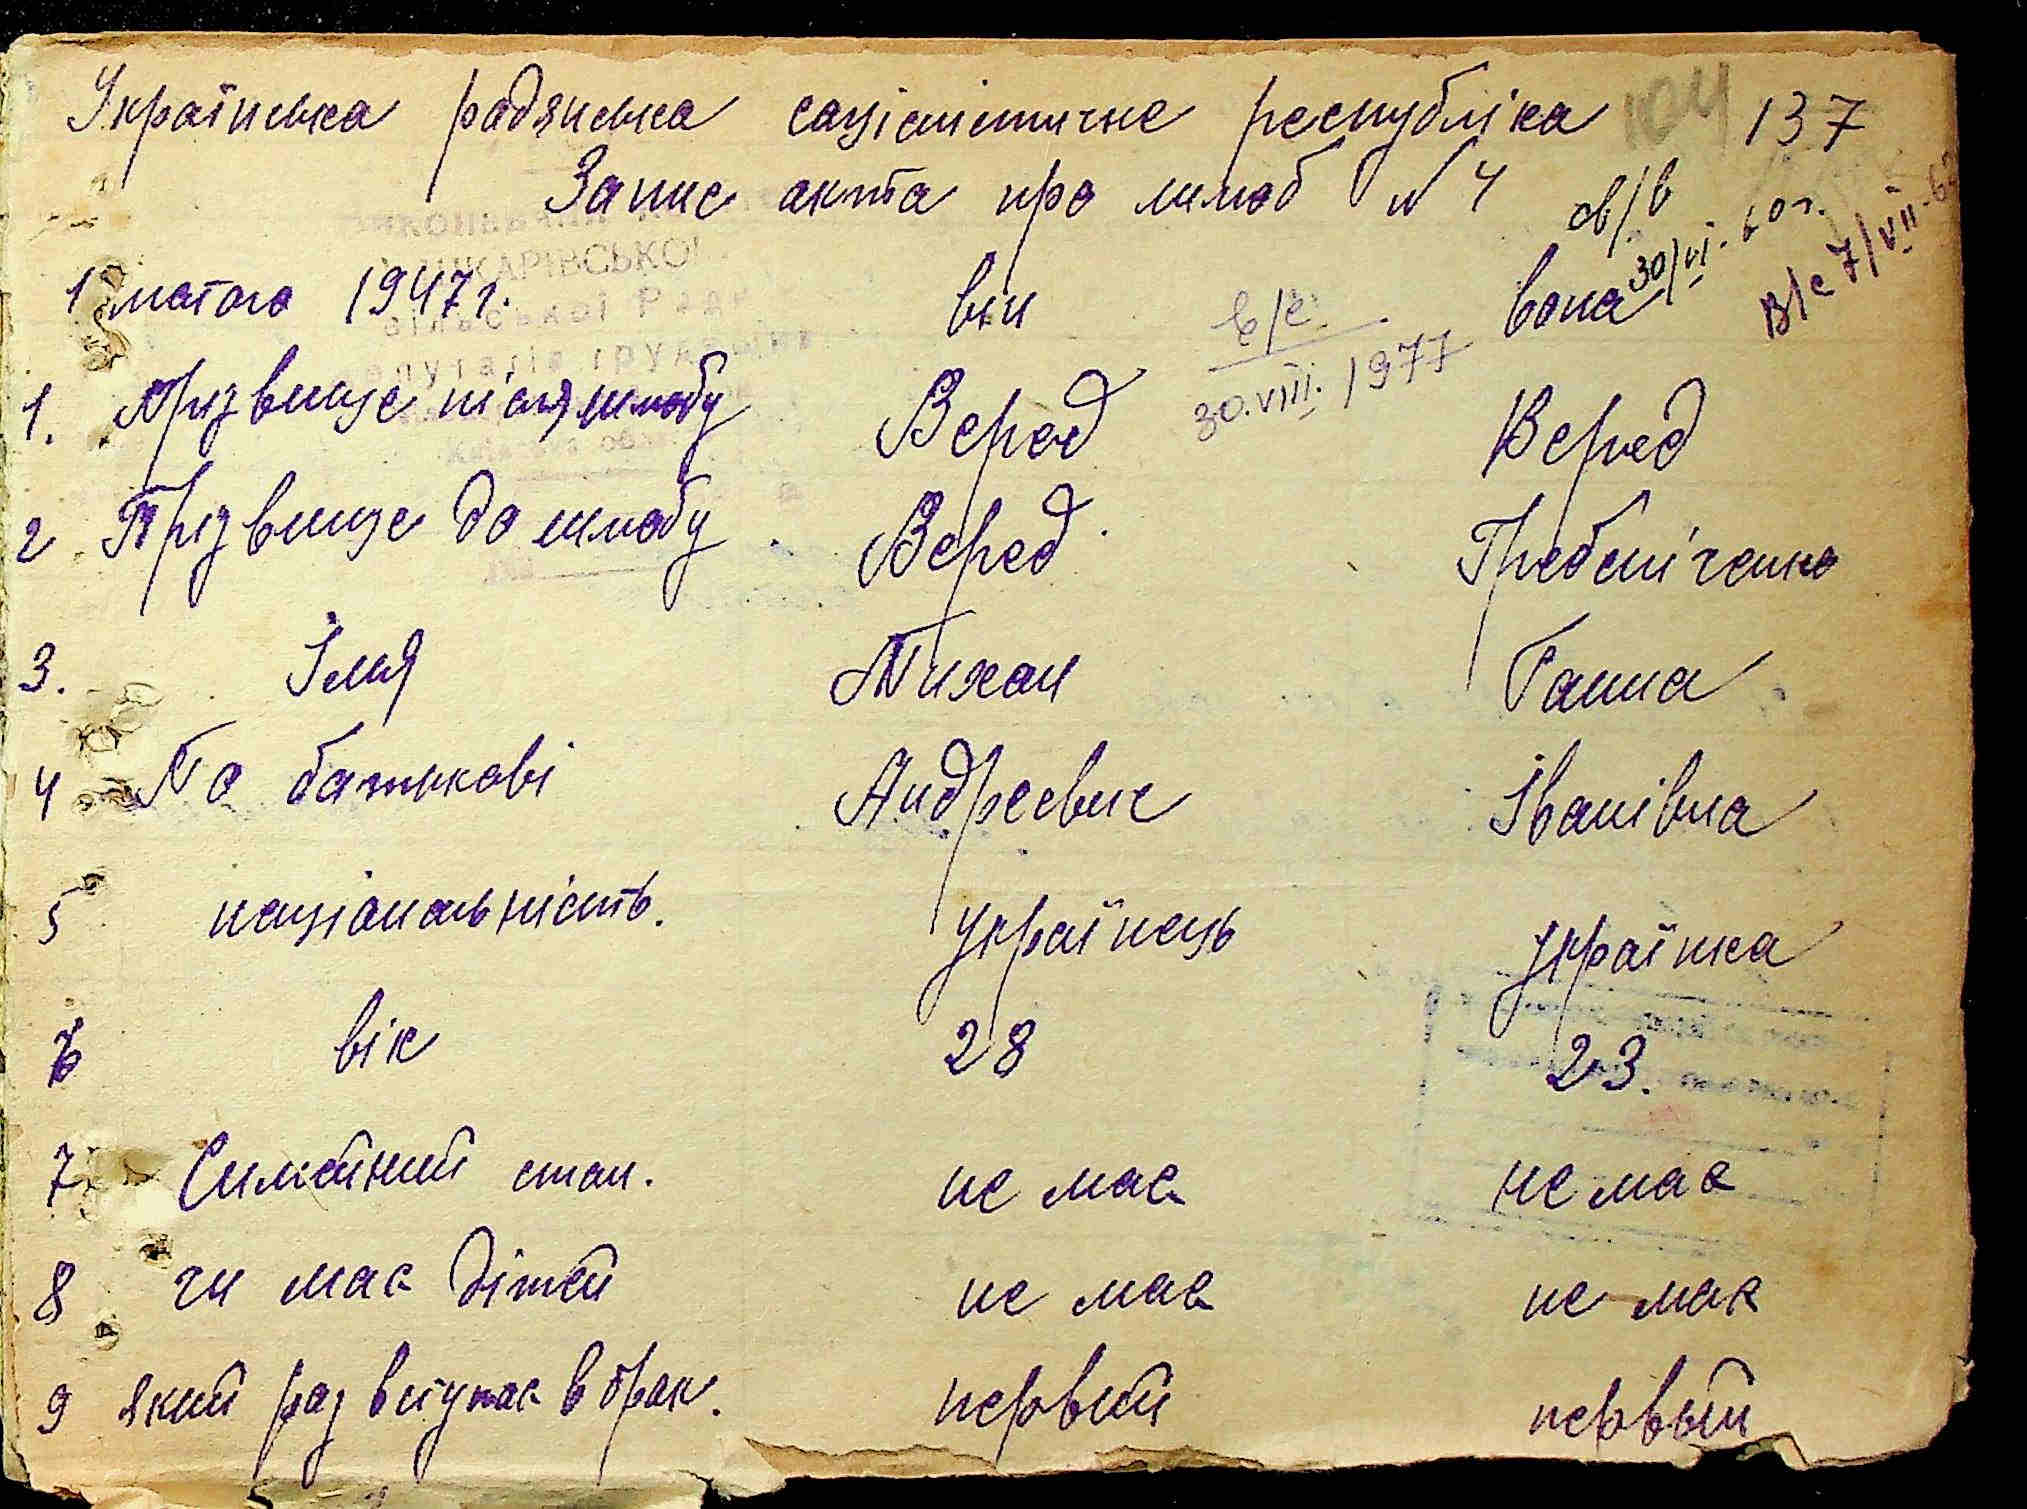 Українська радянська соціалістична республіка 104 137
Запис акта про шлюб N 4
в/в 30/VI. 60 г.
В/с 7/VII-62
1 лютого 1947 г. він вона
в/с 30.VIII. 1977
1. Прізвище після шлюбу Веред Веред
2 Прізвище до шлюбу Веред Гребеніченко
3. Імя Тихан Ганна
4 По батькові Андреевич Іванівна
5 національність. українець українка
6 вік 28 23.
7 Симейний стан. не має не має
8 чи має дітей не має не має
9 який раз вступає в брак. первий первый